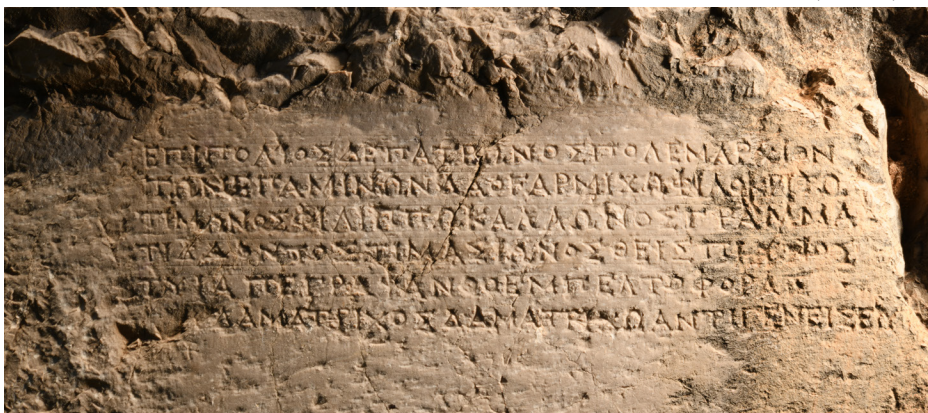 ΕΠΙΠΟΛΙΟΣΔΕΠΑΤΡΩΝΟΣΠΟΛΕΜΑΡΧΙΟΝ
ΤΩΝΕΠΑΜΙΝΩΝΔΑΟΧΑΡΜΙΧΩΦΙΛΟΚΡΙΤΩ
ΤΙΜΩΝΟΣΦΙΛΙΠΠΩΚΑΛΛΩΝΟΣΓΡΑΜΜΑ
ΤΙΔΔΟΝΤΟΣΤΙΜΑΣΙΩΝΟΣΘΕΙΣΠΙ
ΤΥΙΑΠΕΓΡΑΨΑΝΘΟΕΜΠΕΛΤΟΦΟΡΑΣ
ΔΑΜΑΤΡΙΧΟΣΔΑΜΑΤΡΙΧΩΑΝΤΙΓΕΝΕΙΣΕΜ